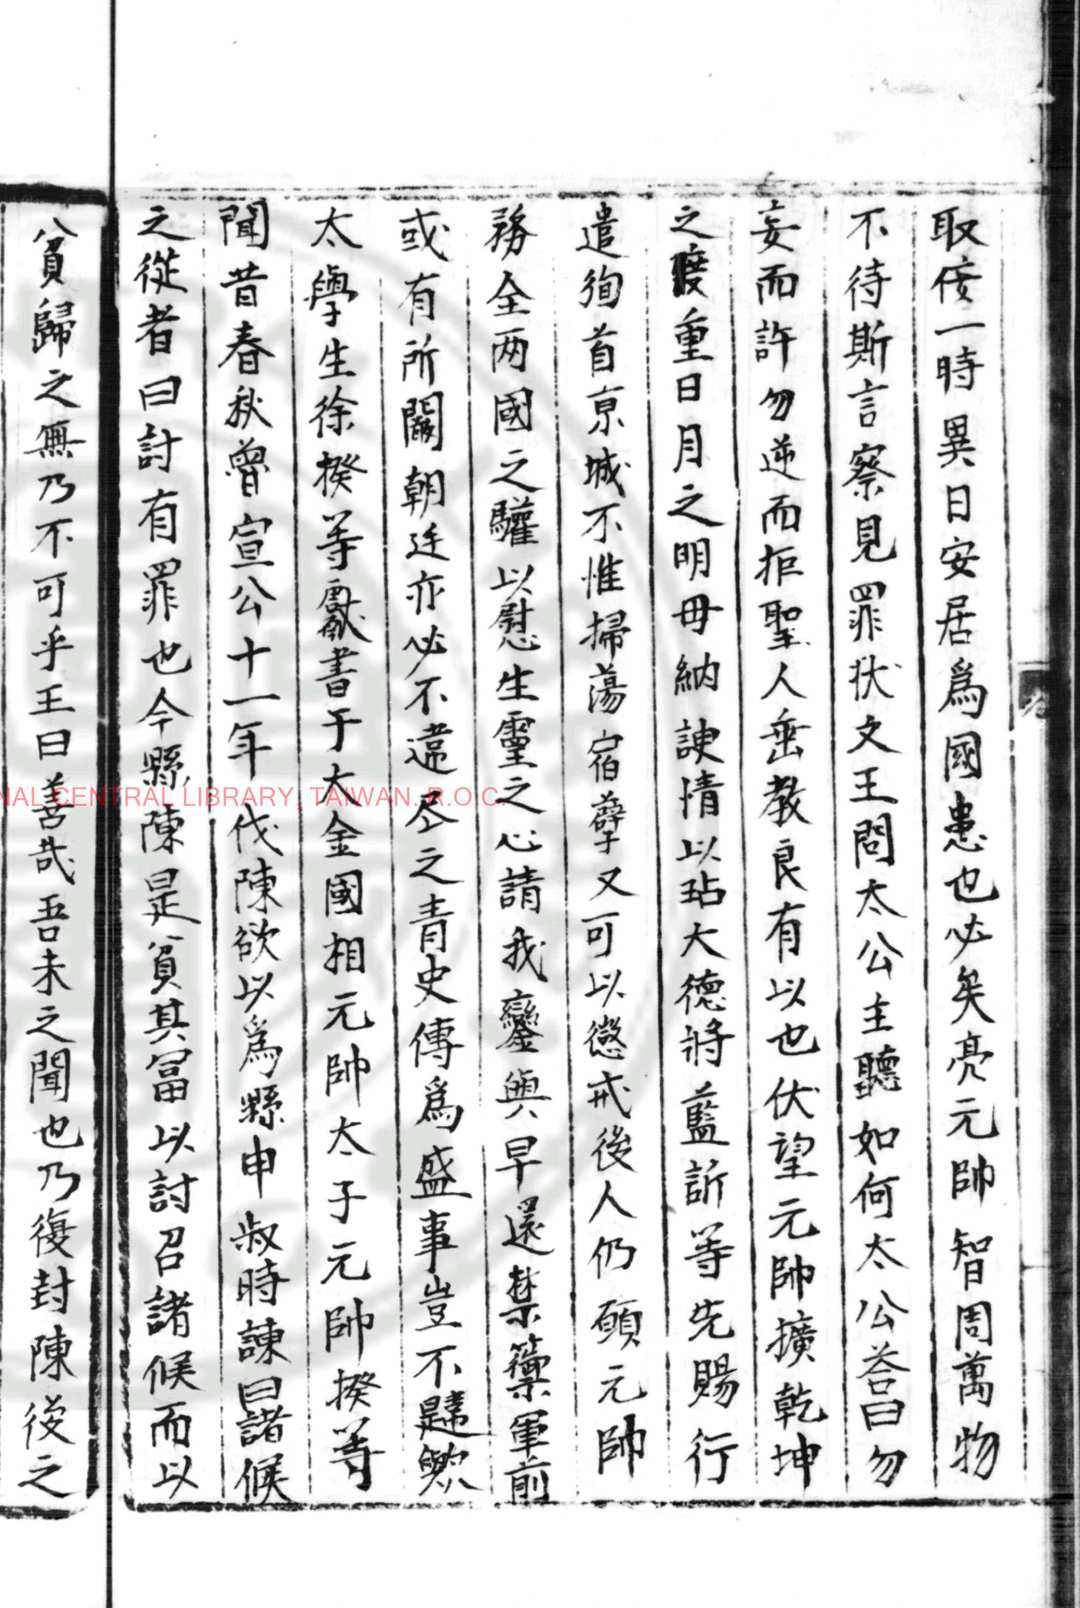 取侫一時異日安居爲國患也必矣亮元帥智周萬物
不待斯言察見罪狀文王問太公主聽如何太公荅曰勿
妄而許勿逆而拒聖人垂教良有以也伏望元帥擴乾坤
之度重日月之明毋納諛情以玷大德將藍訢等先賜行
遣徇首京城不惟掃蕩宿孽又可以懲戒後人仍願元帥
務全两國之驩以慰生靈之心請我鑾輿早還禁籞軍前
或有所闕朝廷亦必不違丕之青史傳爲盛事豈不韙歟
太學生徐揆等獻書于大金國相元帥太子元帥揆等
聞昔春秋魯宣公十一年伐陳欲以爲縣申叔時諫曰諸候
之從者曰討有罪也今縣陳是貪其富以討召諸候而以
貪歸之無乃不可乎王曰善哉吾未之聞也乃復封陳後之
NAL CENTRAL LIBRARY, TAIWAN. R.O.C.